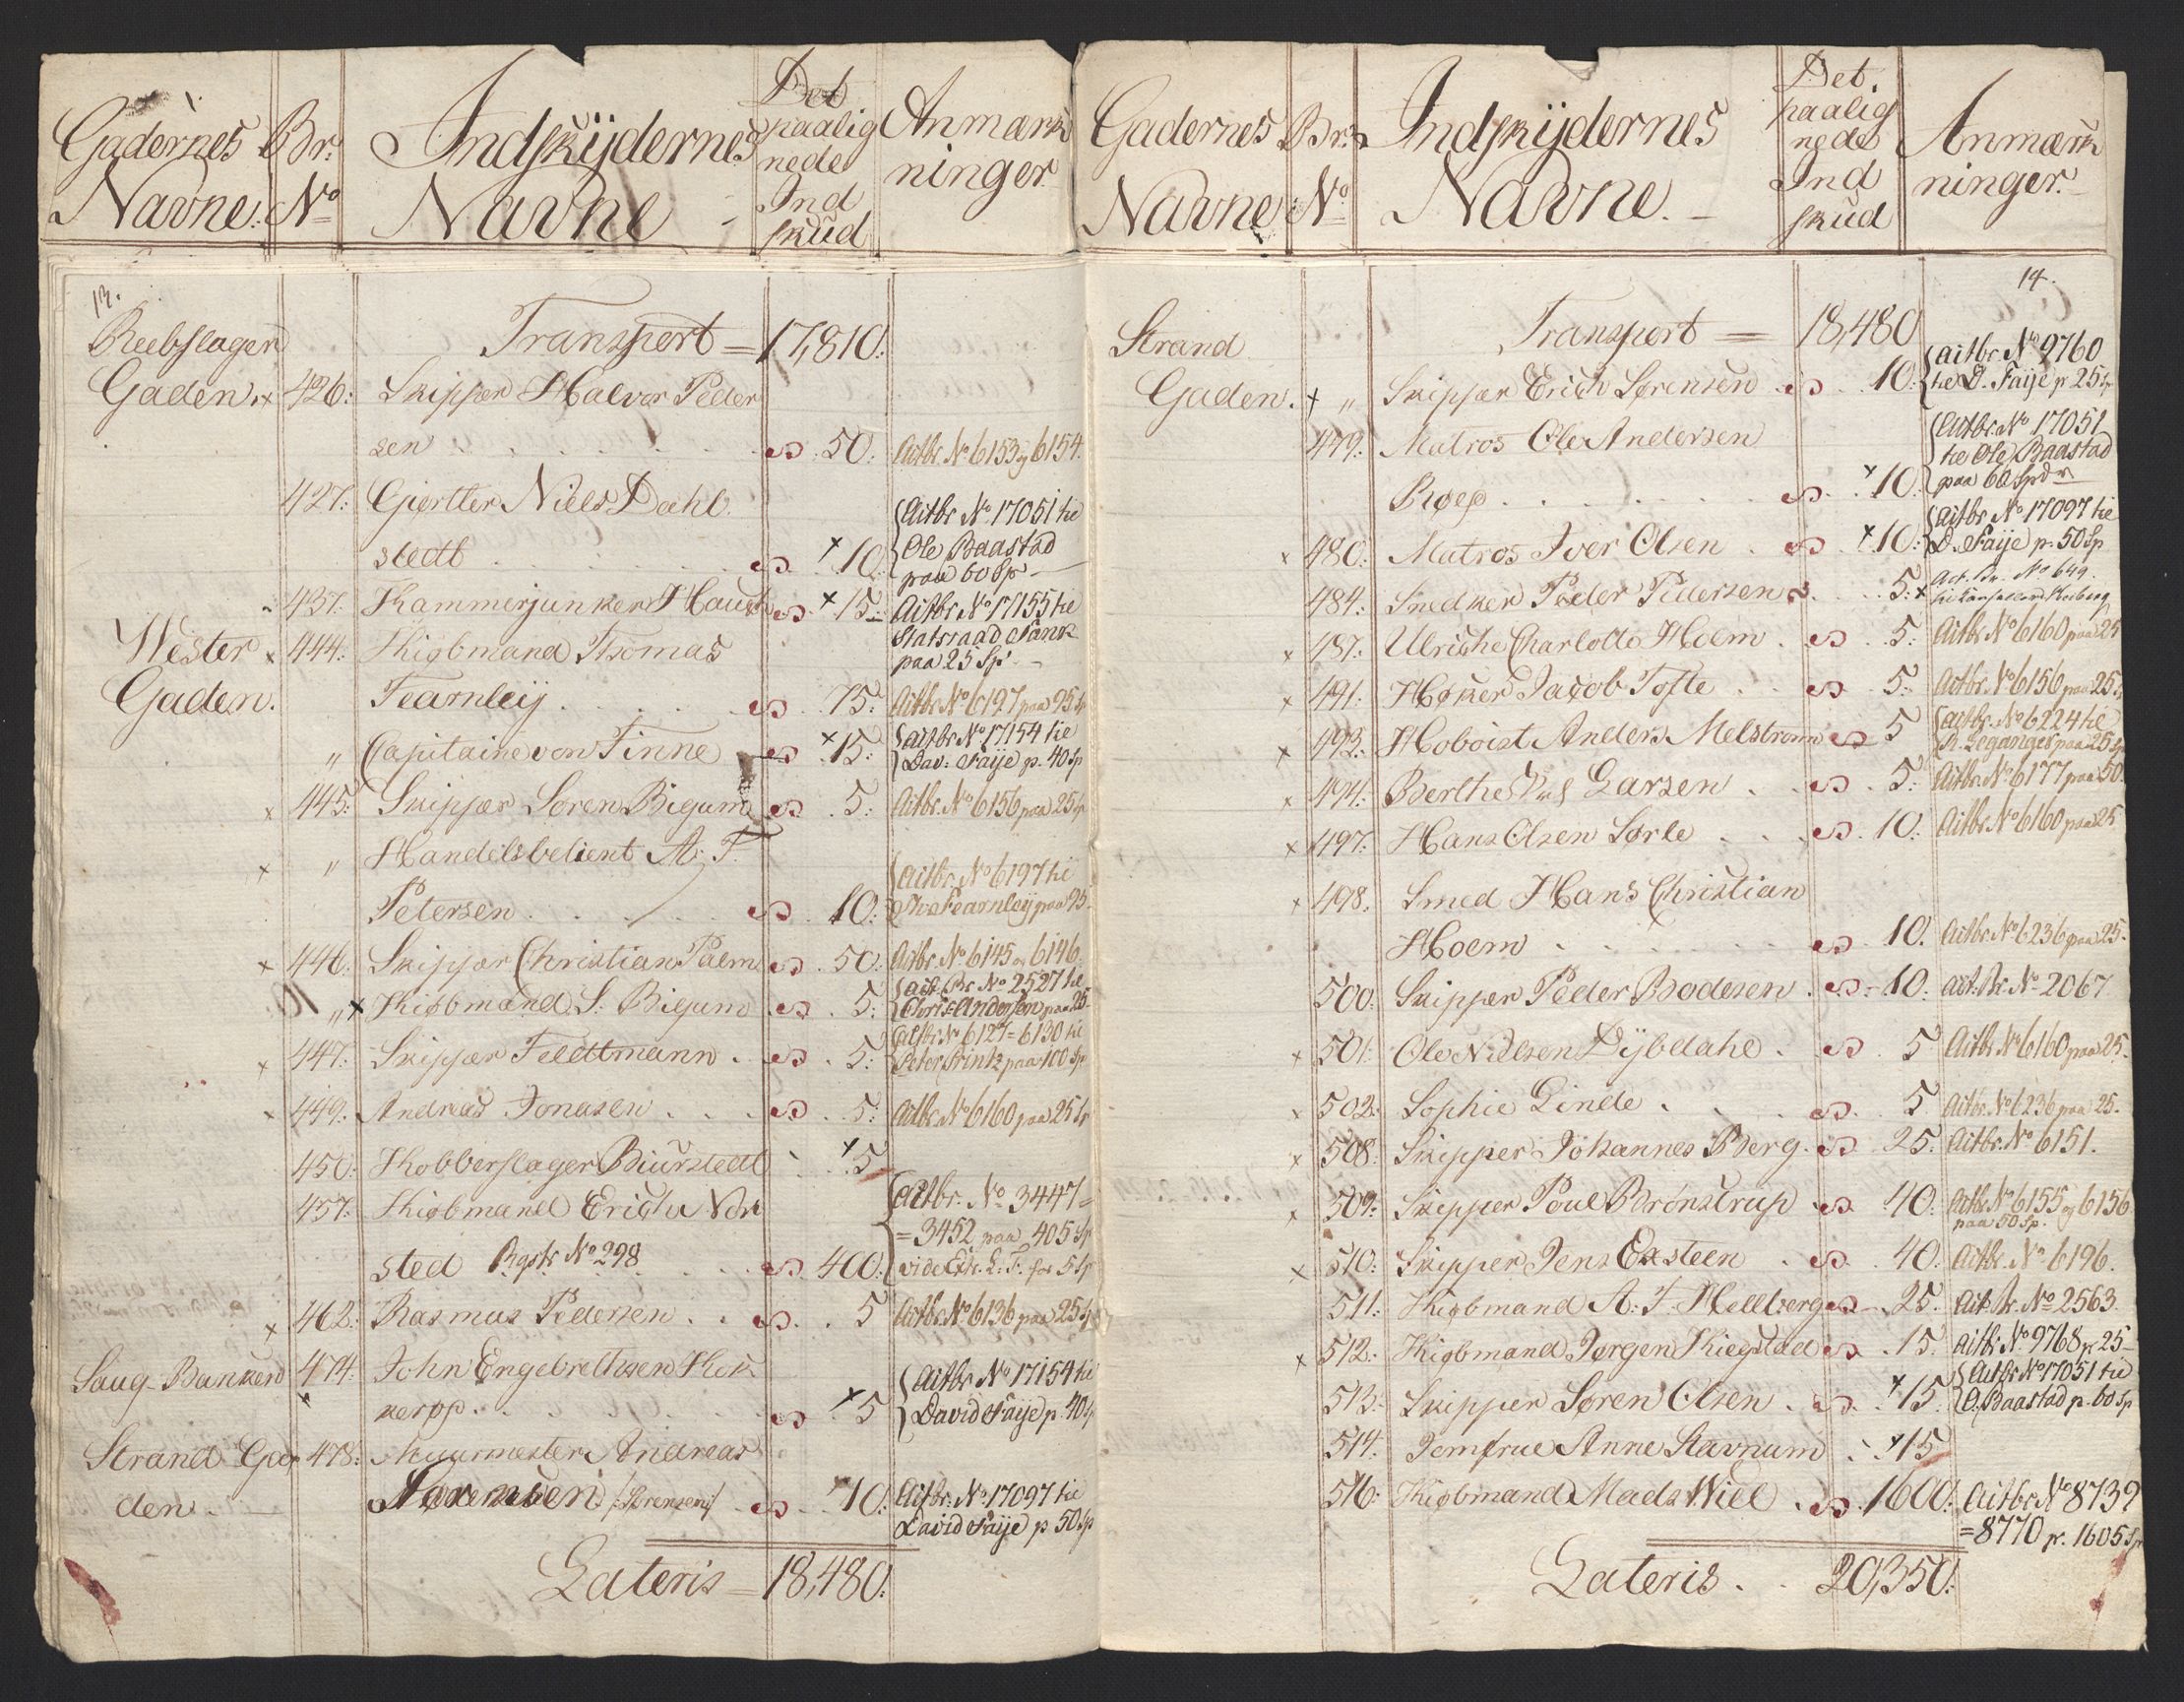 Gadernes Navne. | Br: No | Indskydernes Navne | Det paalig nede Ind skud | Anmærk ninger
13.
Transport = 17,810:
Reebslager
Gaden. x 426: Skipper Halvor Peder
sen . . . 50: Actbr. No 6153 og 6154.
427: Giørtler Niels Dahl
stedt . . . x 10: Actbr No 17051 til
Ole Baastad
paa 60 Sp
437: Kammerjunker Hauch x 15: Actbr No 17155 til
Statsraad Fank
paa 25 Sp
Wester x 444: Kiøbmand Thomas
Gaden. Fearnley . . . 75: Actbr. No 6197 paa 95 Sp
„ Capitaine von Finne x 15: Actbr No 17154 til
Dav: Faÿe p. 40 Sp
x 445: Skipper Søren Bigum 5: Actbr. No 6156 paa 25 Sp
x „ Handelsbetient A: F.
Petersen . . . 10: Actbr. No 6197 til
Tho Fearnley paa 95.
x 446: Skipper Christian Palm 50: Actbr. No 6145 og 6146.
„ x Kiøbmand S: Bigum 5: act: Br No 2527 til
Chris: Andersen paa 25
x 447: Skipper Feldtmann . 5: Actbr No 6127 = 6130 til
Peter Printz paa 100 Sp
x 449: Andreas Jonasen . . . 5: Actbr No 6160 paa 25 Sp
450: Kobberslager Biurstedt x 5
457: Kiøbmand Erich Nor
sted Rgstr No 298 . . . 400: Actbr. No 3447 =
= 3452 paa 405 Sp
vide Extr. L: F. for 5 Sp
x 462: Rasmus Pedersen . . 5 Actbr. No 6136 paa 25 Sp
Saug-Banken 474: John Engebrethsen Kok
x kerop . . . x 5 Actbr No 17154 til
David Faÿe p. 40 Sp
Strand Ga 478: Muurmester Andreas
den. Sørensen /Sørensen/ . 10: Actbr. No 17097 til
David Faÿe p 50 Sp
Lateris = 18,480:
Gadernes Navne | Br: No | Indskydernes Navne. | Det paalig nede Ind skud | Anmærk ninger.
14.
Transport = 18,480
Strand
Gaden. x „ Skipper Erich Sørensen 10: actbr. No 9760
til D. Faÿe p 25 Sp
479: Matros Ole Andersen
Røed . . . x 10: Actbr. No 17051
til Ole Baastad
paa 60 Spdr
x 480: Matros Iver Olsen . x 10: Actbr No 17097 til
D. Faÿe p. 50 Sp
484: Snedker Peder Pedersen 5: x Act. Br. No 649.
x 487: Ulriche Charlotte Hoem . 5: Actbr No 6160 paa 25
x 491: Høker Jacob Tofte . . 5: Actbr. No 6156 paa 25 Sp
x 493: Hoboist Anders Melstrøm 5 actbr. No 6224 til
R. Leganger paa 25 Sp
x 494: Berthe Larsen . . 5: Actbr. No 6177 paa 50.
x 497: Hans Olsen Sørle . . 10: Actbr. No 6160 paa 25
x 498: Smed Hans Christian
Hoem . . . 10. Actbr. No 6236 paa 25.
500: Skipper Peder Bodesen . 10: act: Br. No 2067
x 501: Ole Nilsen Dÿbdahl . 5 Actbr. No 6160 paa 25.
x 502: Sophie Linde . . . 5 Actbr. No 6236 paa 25.
x 508: Skipper Johannes Berg. 25: Actbr. No 6151.
x 509: Skipper Poul Brønstrup 40: Actbr No 6155 og 6156
paa 50 Sp.
x 510: Skipper Jens Exsteen . 40: Actbr. No 6196.
511: Kiøbmand A: F. Hellberg 25: Act: Br. No 2563.
x 512: Kiøbmand Jørgen Kiegstad 15: Actbr: No 9768 p 25
513: Skipper Søren Olsen . x 15: Actbr No 17051 til
O. Baastad p. 60 Sp
514: Jomfrue Anne Stavnum x 15
516: Kiøbmand Mads Wiel . 1600: Actbr No 8739
= 8770 pr. 1605 Sp
Lateris . . 20,350: